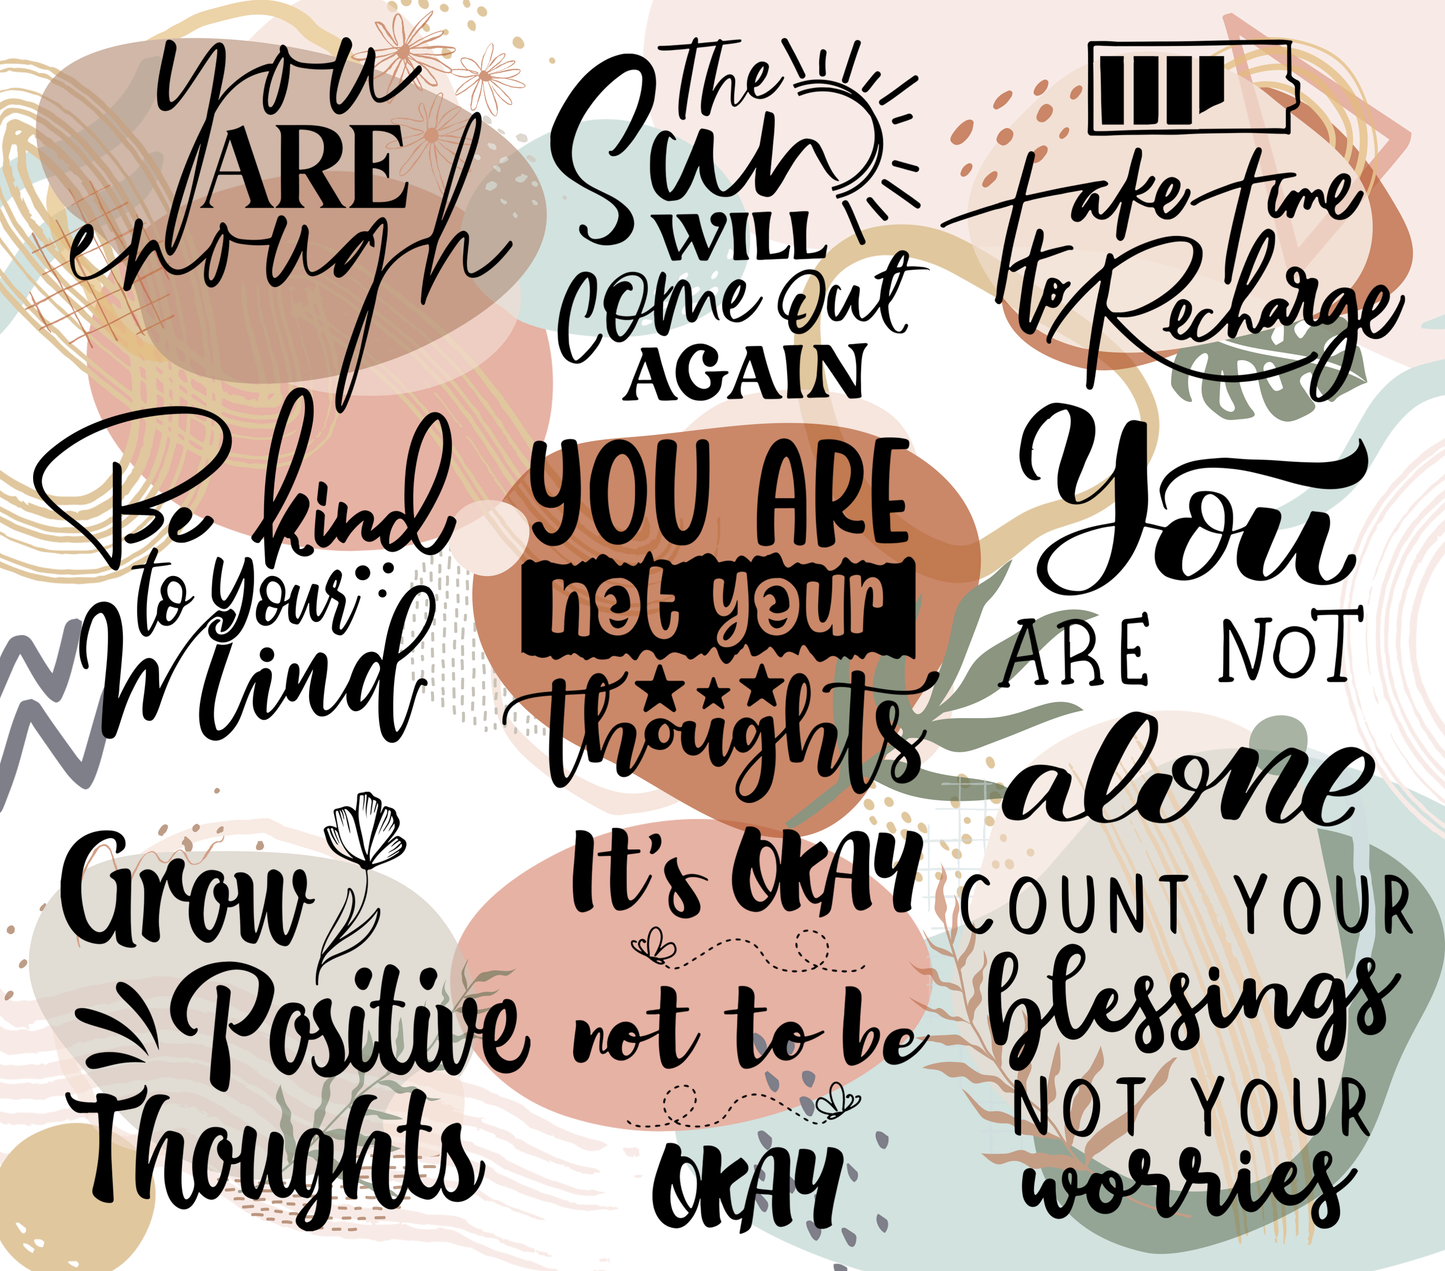 you
ARE
enough
The
Sun
WILL
come out
AGAIN
take time
to Recharge
Be kind
to your
Mind
YOU ARE
not your
thoughts
You
ARE NOT
alone
Grow
Positive
Thoughts
It's OKAY
not to be
OKAY
COUNT YOUR
blessings
NOT YOUR
worries